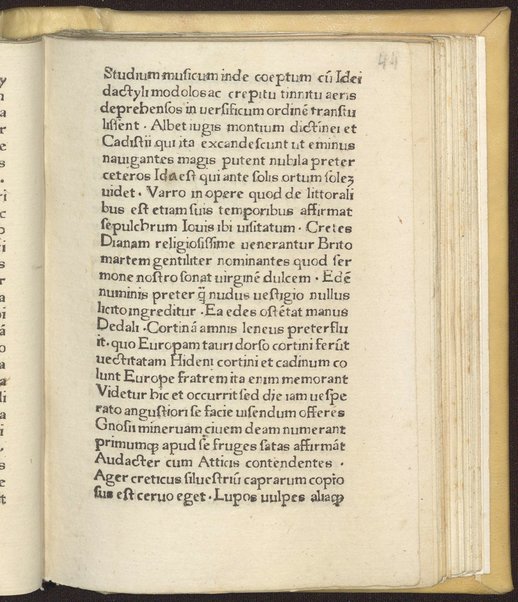 44
Studium musicum inde coeptum cū Idei
dactyli modolos ac crepitu tinnitu aeris
deprehensos in uersificum ordinē transtu
lissent . Albet iugis montium dictinei et
Cadistii qui ita excandescunt ut eminus
nauigantes magis putent nubila preter
ceteros Ida est qui ante solis ortum solez
uidet . Varro in opere quod de littorali
bus est etiam suis temporibus affirmat
sepulchrum Iouis ibi uisitatum . Cretes
Dianam religiosissime uenerantur Brito
martem gentiliter nominantes quod ser
mone nostro sonat uirginē dulcem . Edē
numinis preter q̄ nudus uestigio nullus
licito ingreditur . Ea edes ostētat manus
Dedali . Cortinā amnis leneus preterflu
it . quo Europam tauri dorso cortini ferūt
uectitatam Hideni cortini et cadinum co
lunt Europe fratrem ita enim memorant
Videtur hic et occurrit sed die iam uespe
rato angustiori se facie uisendum offeres
Gnosii mineruam ciuem deam numerant
primumqꝫ apud se fruges satas affirmāt
Audacter cum Atticis contendentes .
Ager creticus siluestriū caprarum copio
sus est ceruo eget . Lupos uulpes aliaqꝫ